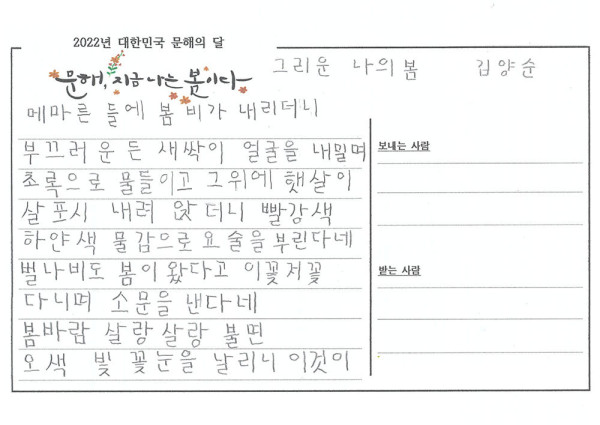 2022년 대한민국 문해의 달
문해, 지금 나는 봄이다
그리운 나의봄 김양순
메마른 들에 봄 비가 내리더니
부끄러운 듯 새싹이 얼굴을 내밀며
초록으로 물들이고 그위에 햇살이
살포시 내려 앉더니 빨강색
하얀색 물감으로 요술을 부린다네
벌나비도 봄이 왔다고 이꽃저꽃
다니며 소문을 낸다네
봄바람 살랑살랑 불면
오색 빛 꽃눈을 날리니 이것이
보내는 사람
받는 사람